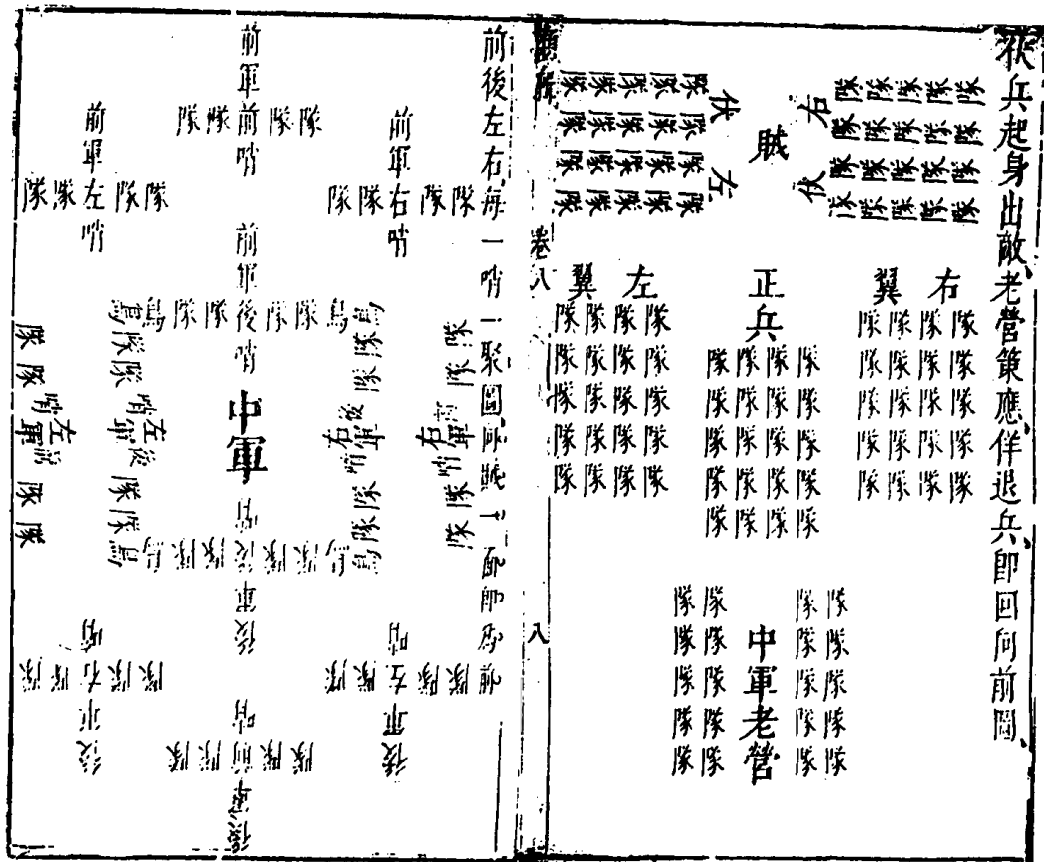 伏兵起身出敵、老營策應、佯退兵、即回向前圖、
右伏
隊隊隊隊隊
隊隊隊隊隊
隊隊隊隊隊
隊隊隊隊隊
賊
左伏
隊隊隊隊隊
隊隊隊隊隊
隊隊隊隊隊
隊隊隊隊隊
右翼
隊隊隊隊
隊隊隊隊
隊隊隊隊
隊隊隊隊
隊隊隊隊
正兵
隊隊隊隊
隊隊隊隊
隊隊隊隊
隊隊隊隊
隊隊隊隊
左翼
隊隊隊隊
隊隊隊隊
隊隊隊隊
隊隊隊隊
隊隊隊隊
隊隊
隊隊
隊隊
隊隊
隊隊
中軍老營
隊隊
隊隊
隊隊
隊隊
隊隊
卷八
八
前後左右每一哨一聚圖
前軍前哨
隊隊隊隊
前軍右哨
隊隊隊隊
前軍左哨
隊隊隊隊
前軍後哨
鳥隊隊隊隊鳥
右軍前哨
隊隊隊隊
右軍後哨
鳥隊隊隊隊鳥
中軍
左軍後哨
鳥隊隊隊隊鳥
左軍前哨
隊隊隊隊
後軍後哨
鳥隊隊隊隊鳥
後軍左哨
隊隊隊隊
後軍右哨
隊隊隊隊
後軍前哨
隊隊隊隊